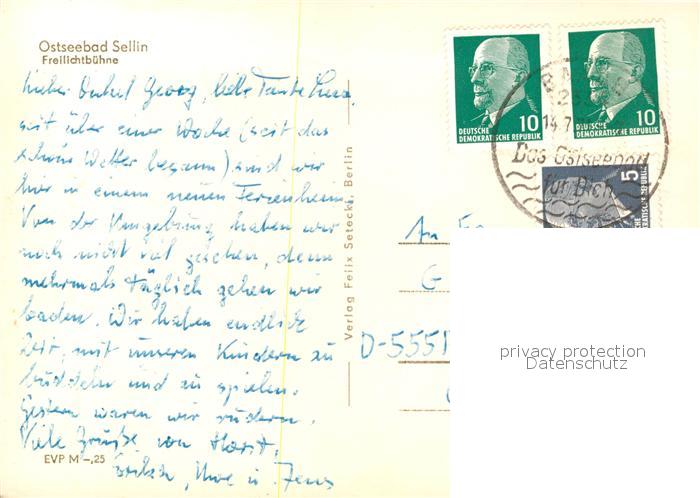 Ostseebad Sellin
Freilichtbühne
Lieber Onkel Georg, liebe Tante
seit über einer Woche (seit das
schöne Wetter begann) sind wir
hier in einem neuen Ferienheim.
Von der Umgebung haben wir
noch nicht viel gesehen, denn
mehrmals täglich gehen wir
baden. Wir haben endlich
Zeit, mit unseren Kindern zu
buddeln und zu spielen.
Gestern waren wir rudern.
Viele Grüße von Horst,
Uwe u. Jens
EVP M -,25
Verlag Felix Setecki, Berlin
10
DEUTSCHE
DEMOKRATISCHE REPUBLIK
10
DEUTSCHE
DEMOKRATISCHE REPUBLIK
14.7.
Das Ostseebad
für Dich
5
An
G
D-555
privacy protection
Datenschutz